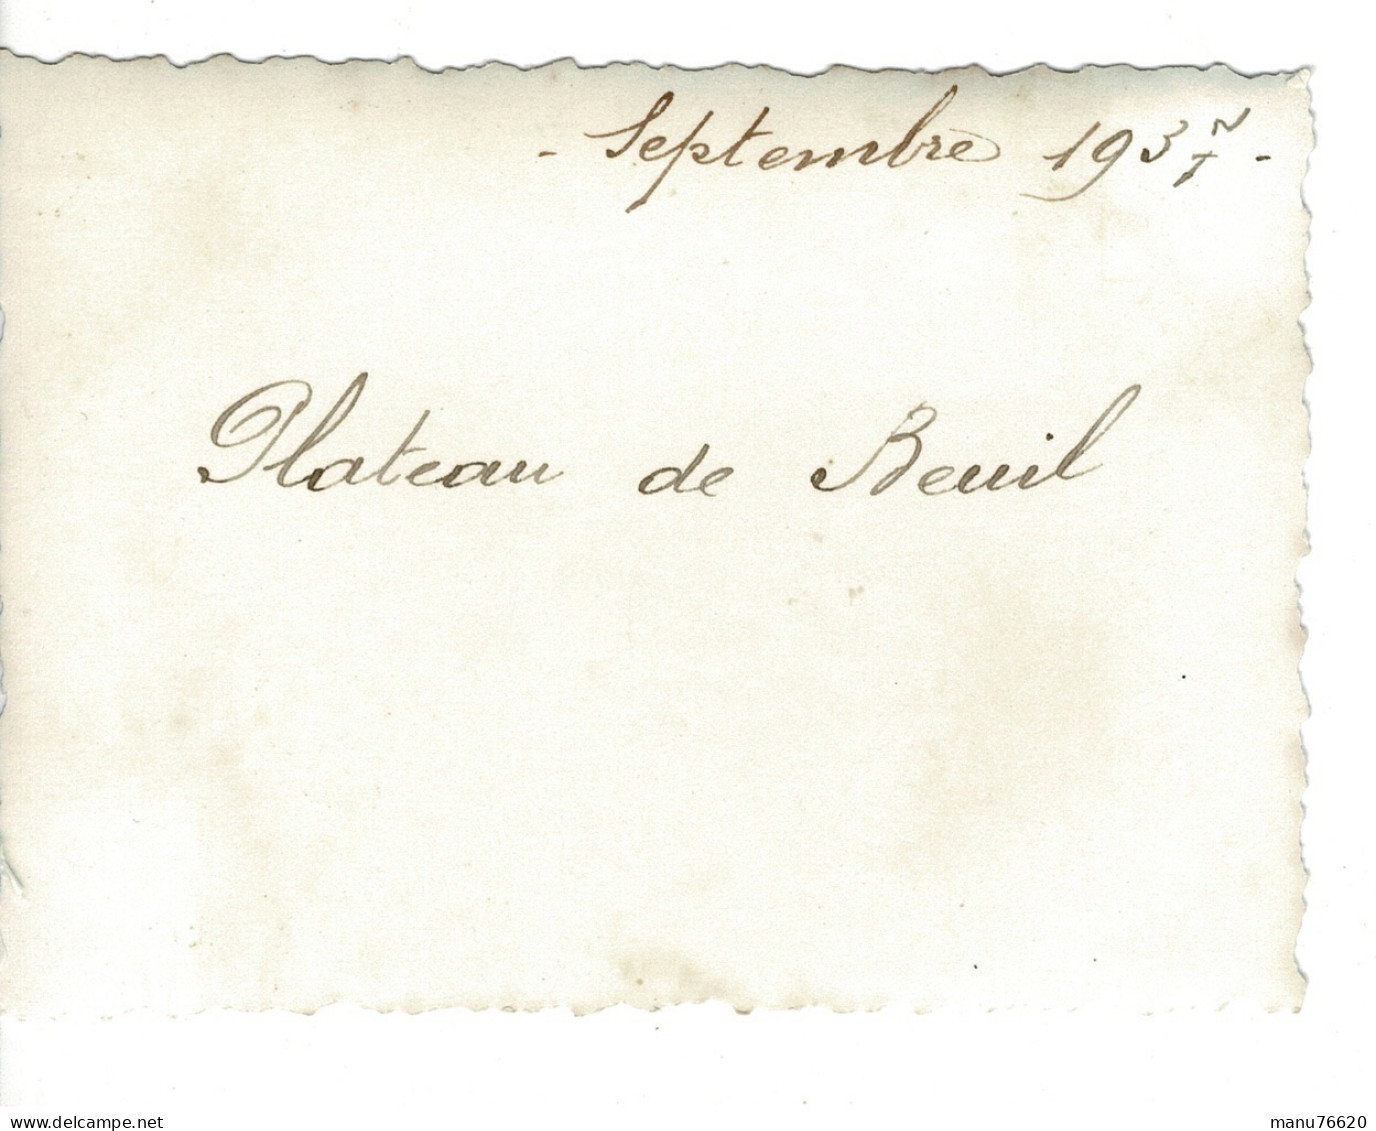 - Septembre 1937 -
Plateau de Beuil
www.delcampe.net
manu76620